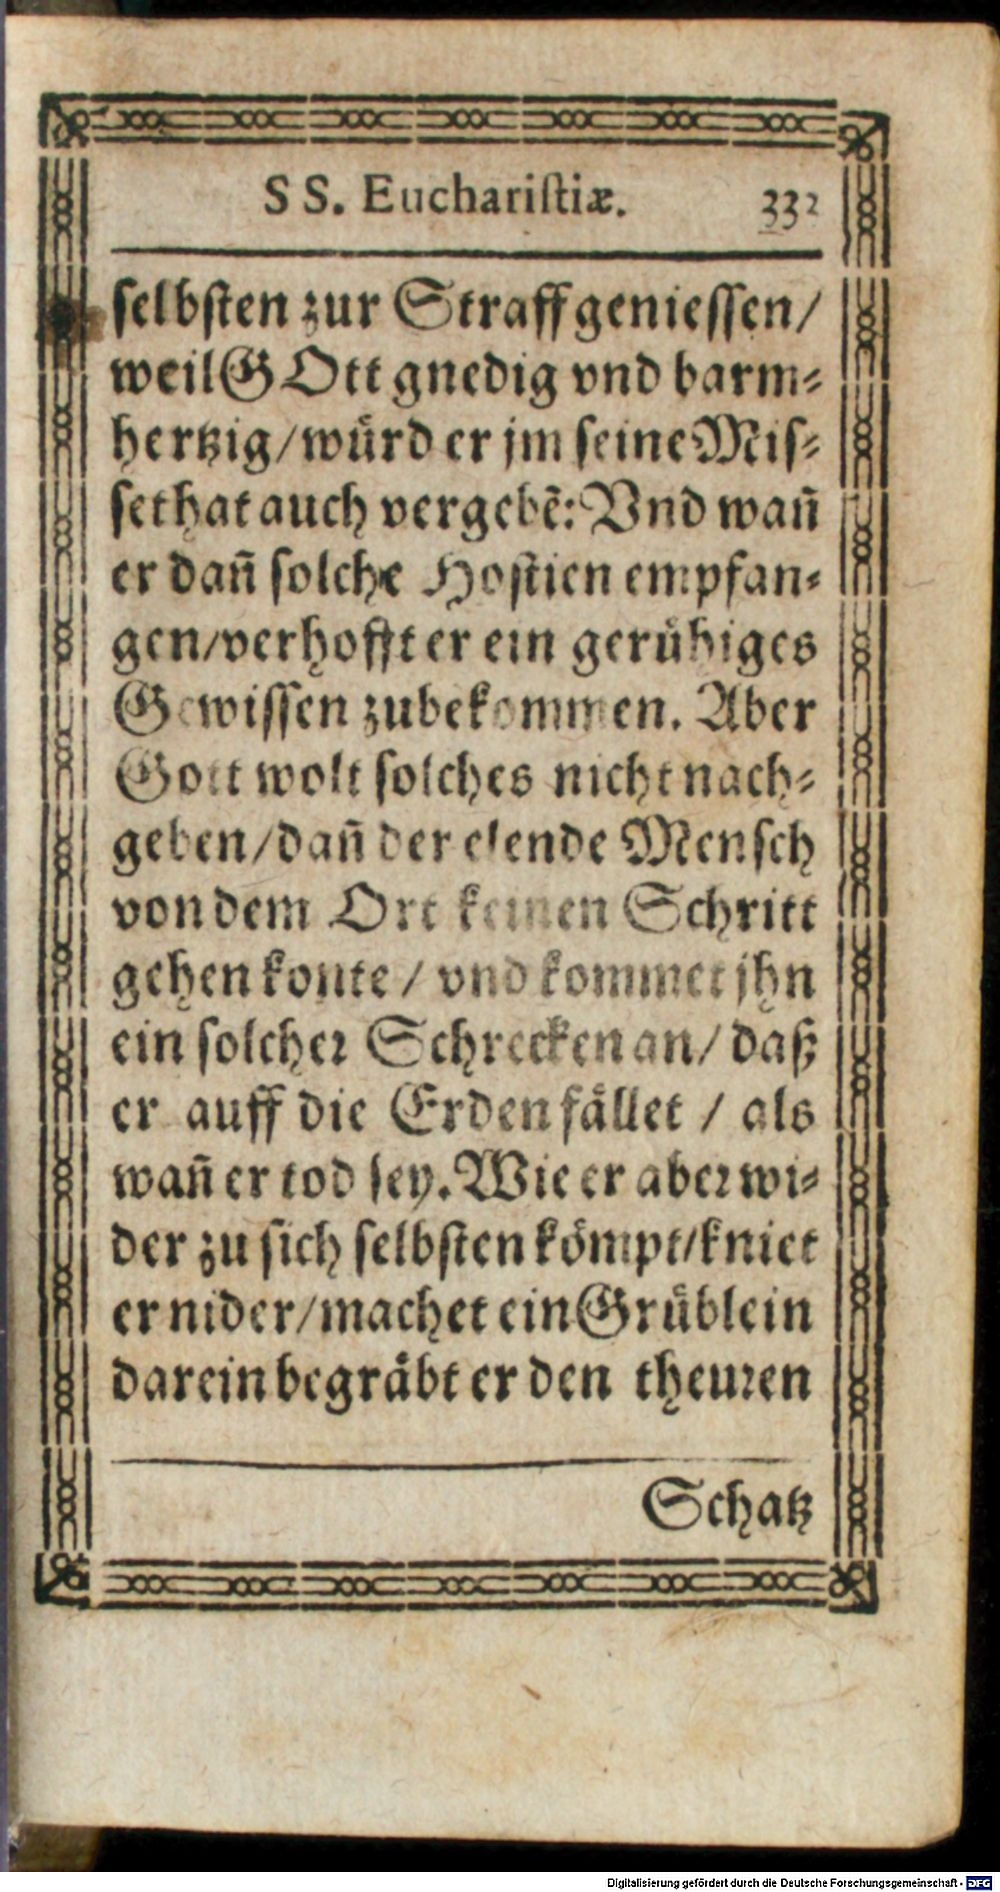 SS. Euchariſtiæ. 332
ſelbſten zur Straff genieſſen/
weil GOtt gnedig vnd barm⸗
hertzig/ würd er jm ſeine Miſ⸗
ſethat auch vergebẽ: Vnd wañ
er dañ ſolche Hoſtien empfan⸗
gen/ verhofft er ein gerühiges
Gewiſſen zubekommen. Aber
Gott wolt ſolches nicht nach⸗
geben/ dañ der elende Menſch
von dem Ort keinen Schritt
gehen konte / vnd kommet jhn
ein ſolcher Schrecken an/ daß
er auff die Erden fället / als
wañ er tod ſey. Wie er aber wi⸗
der zu ſich ſelbſten kömpt/ kniet
er nider/ machet ein Grüblein
darein begräbt er den theuren
Schatz
Digitalisierung gefördert durch die Deutsche Forschungsgemeinschaft - DFG